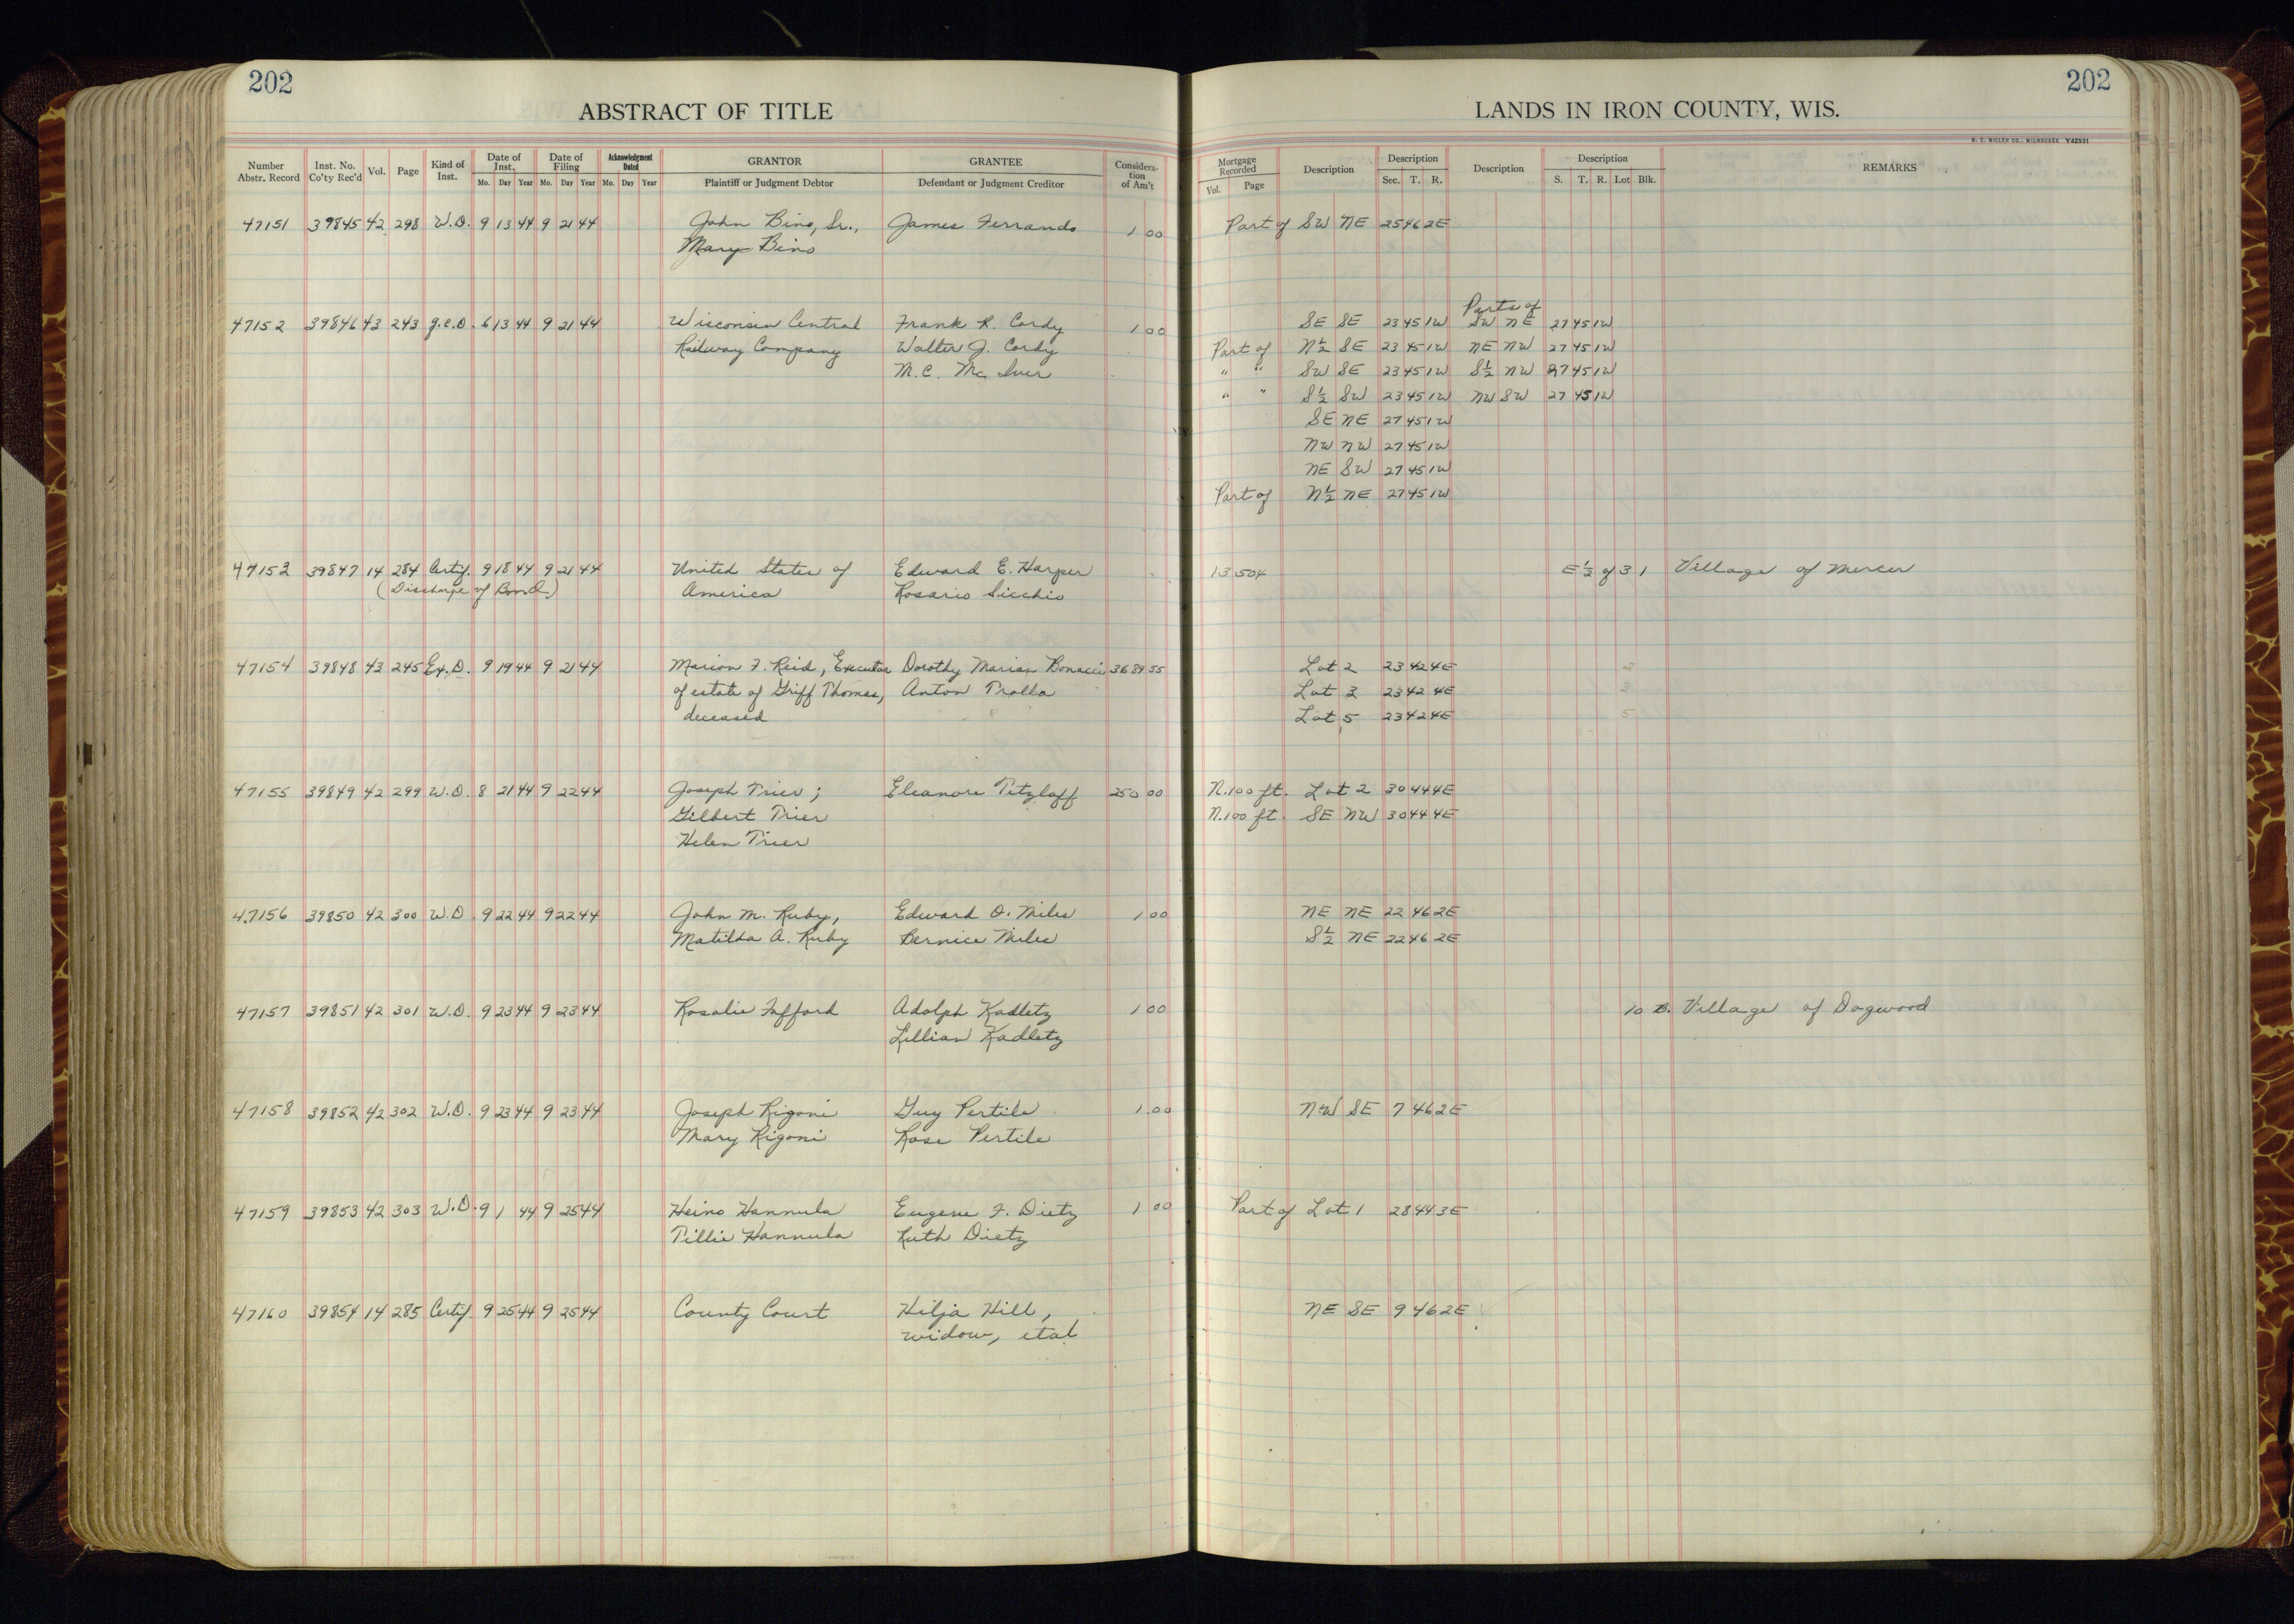 202
202
ABSTRACT OF TITLE
LANDS IN IRON COUNTY, WIS.
H. C. MILLER CO., MILWAUKEE Y42931
Number Abstr. Record Inst. No. Co'ty Rec'd Vol. Page Kind of Inst. Date of Inst. Mo. Day Year Date of Filing Mo. Day Year Acknowledgment Dated Mo. Day Year GRANTOR Plaintiff or Judgment Debtor GRANTEE Defendant or Judgment Creditor Consideration of Am't
Mortgage Recorded Vol. Page Description Description Sec. T. R. Description Description S. T. R. Lot Blk. REMARKS
47151 39845 42 298 W.D. 9 13 44 9 21 44 John Bino, Sr., James Ferrando 1 00 Part of SW NE 25 46 2E
Mary Bino
Parts of
47152 39846 43 243 q.c.D. 6 13 44 9 21 44 Wisconsin Central Frank R. Cordy 1 00 SE SE 23 45 1W SW NE 27 45 1W
Railway Company Walter J. Cordy Part of N½ SE 23 45 1W NE NW 27 45 1W
M.C. Mc Iver " " SW SE 23 45 1W S½ NW 27 45 1W
" " S½ SW 23 45 1W NW SW 27 45 1W
SE NE 27 45 1W
NW NW 27 45 1W
NE SW 27 45 1W
Part of N½ NE 27 45 1W
47153 39847 14 284 Certif. 9 18 44 9 21 44 United States of Edward E. Harper 13 504 E½ of 3 1 Village of Mercer
(Discharge of Bond) America Rosario Sicchio
47154 39848 43 245 Ex.D. 9 19 44 9 21 44 Marion F. Reid, Executor Dorothy Marian Bonacci 3689 55 Lot 2 23 42 4E 2
of estate of Griff Thomas, Anton Tralla Lot 3 23 42 4E 3
deceased Lot 5 23 42 4E 5
47155 39849 42 299 W.D. 8 21 44 9 22 44 Joseph Trier; Eleanore Titzloff 250 00 N.100 ft. Lot 2 30 44 4E
Gilbert Trier N.100 ft. SE NW 30 44 4E
Helen Trier
47156 39850 42 300 W.D. 9 22 44 9 22 44 John M. Ruby, Edward O. Miles 1 00 NE NE 22 46 2E
Matilda A. Ruby Bernice Miles S½ NE 22 46 2E
47157 39851 42 301 W.D. 9 23 44 9 23 44 Rosalie Fafford Adolph Kadletz 1 00 10 B. Village of Dogwood
Lillian Kadletz
47158 39852 42 302 W.D. 9 23 44 9 23 44 Joseph Rigoni Guy Pertile 1 00 NW SE 7 46 2E
Mary Rigoni Rose Pertile
47159 39853 42 303 W.D. 9 1 44 9 25 44 Heino Hannula Eugene F. Dietz 1 00 Part of Lot 1 28 44 3E
Tillie Hannula Ruth Dietz
47160 39854 14 285 Certif. 9 25 44 9 25 44 County Court Hilja Hill, NE SE 9 46 2E
widow, etal